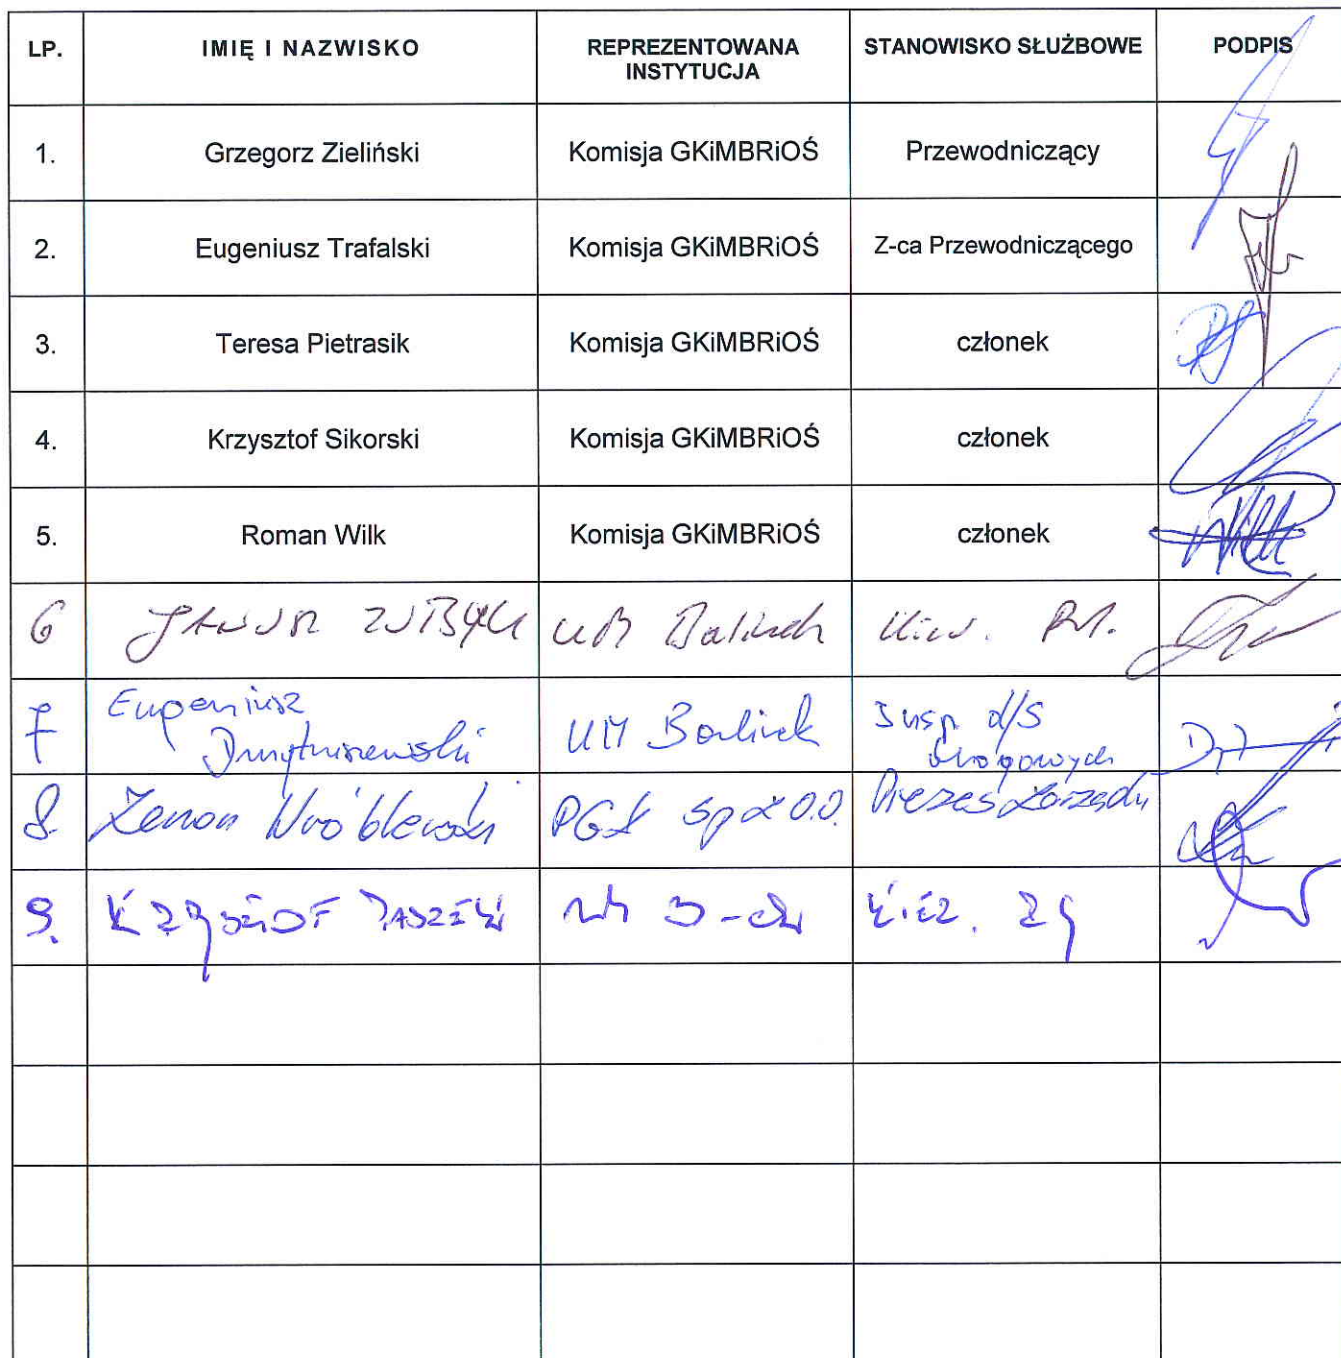 LP. IMIĘ I NAZWISKO REPREZENTOWANA INSTYTUCJA STANOWISKO SŁUŻBOWE PODPIS
1. Grzegorz Zieliński Komisja GKiMBRiOŚ Przewodniczący
2. Eugeniusz Trafalski Komisja GKiMBRiOŚ Z-ca Przewodniczącego
3. Teresa Pietrasik Komisja GKiMBRiOŚ członek
4. Krzysztof Sikorski Komisja GKiMBRiOŚ członek
5. Roman Wilk Komisja GKiMBRiOŚ członek
6 UM
7 Eugeniusz UM Barlinek Insp. d/s drogowych
8. Zenon Wróblewski PGK sp z o.o. Prezes Zarządu
9.